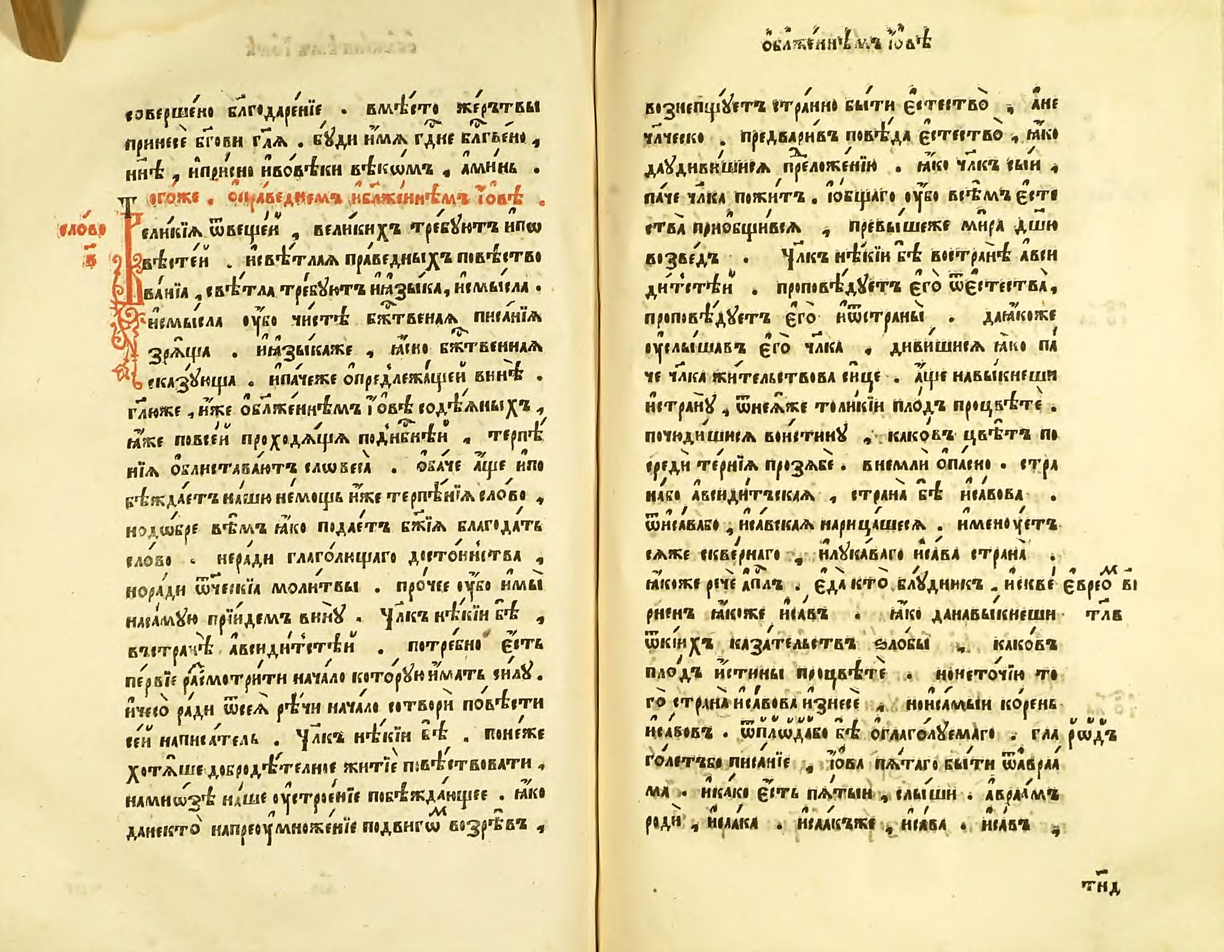 совершено бл҃годаре́нїе . вмѣ́сто же́рътвы
принесѐ бг҃ови гл҃ѧ . бꙋ́ди и҆́мѧ гд҇не блг҇ве́но ,
нн҃ѣ , и҆при́сно и҆вовѣ́ки вѣкѡ́мъ , а҆ми́нь .
Тогоже . ѡ҆пра́веднемъ и҆бл҃же́ннѣмъ і҆́овѣ .
сло́во
в҃
Вели́кїѧ ѿвеще́й , вели́кихъ тре́бꙋютъ и҆пѡ
вѣстей . и҆свѣ́тлаѧ пра́ведныхъ повѣ́ство
ва́нїѧ , свѣ́тла тре́бꙋютъ и҆ꙗ҆зы́ка , и҆мы́сла .
и҆мы́сла оу҆́бо чи́стѣ бж҇твенаѧ писа́нїѧ
зрѧ́ща . и҆ꙗ҆зы́каже , ꙗ҆́сно бж҇твеннаѧ
сказꙋ́юща . и҆па́чеже ѡ҆предлежа́щей винѣ̀ .
гл҃юже , и҆́же ѡ҆бл҃же́ннѣмъ і҆́овѣ содѣ́ѧныхъ ,
ꙗ҆́же повсе́й проходѧ́щїѧ поднб҇нѣй , терпѣ́
нїѧ ѡ҆блиста́ваютъ словеса̀ . ѡ҆ба́че а҆́ще и҆по
бѣжда́етъ на́шю не́мощь и҆́же терпѣ́нїѧ сло́во ,
нодѡ́бре вѣ́мъ ꙗ҆́ко подае́тъ бж҃їѧ благода́ть
сло́во . неради глаго́лющаго досто́инства ,
норади ѻ҆те́ческїѧ моли́твы . про́чее оу҆́бо и҆мы̀
наса́мꙋю прїи́демъ винꙋ̀ . Чл҃къ нѣ́кїи бѣ̀ ,
въстранѣ̀ а҆всиди́тстѣй . потре́бно є҆́сть
пе́рвїе расмотри́ти нача́ло котор́ꙋю и҆́мать си́лꙋ .
и҆чесо̀ ра́ди ѿсеѧ̀ рѣ́чи нача́ло сотворѝ по́вѣсти
се́й написа́тель . Чл҃къ нѣ́кїи бѣ̀ . поне́же
хотѧ́ше добродѣ́телное житїѐ повѣ́ствовати ,
намно́зѣ на́ше оу҆строе́нїе побѣжда́ющее . ꙗ҆́ко
данекто̀ напреоу҆множе́нїе по́двигѡм возрѣ́въ ,
ѡ҆бл҃же́ннѣмъ і҆́овѣ
возне́пщꙋетъ стра́нно бы́ти є҆стество̀ , а҆не
чл҃ческо . предвари́въ повѣ́да є҆стество̀ , ꙗ҆́ко
даꙋдиви́шисѧ преложе́нїи . ꙗ҆́ко чл҃къ сы́и ,
па́че чл҃ка пожи́тъ . і҆о҆́бщаго оу҆́бо всѣ́мъ є҆сте
ства̀ приѻбщи́всѧ , превы́шеже ми́ра дш҃ю
возве́дъ . Чл҃къ нѣ́кїи бѣ̀ востранѣ̀ а҆вси
ди́тстѣй . проповѣ́дꙋетъ є҆го̀ ѿє҆стества̀ ,
проповѣ́дꙋетъ є҆го̀ и҆ѿстраны̀ . даꙗ҆́коже
оу҆слы́шавъ є҆го̀ чл҃ка , диви́шисѧ ꙗ҆́ко па́
че чл҃ка жи́тельствова си́це . а҆́ще навы́кнеши
и҆странꙋ̀ , ѿнеѧ́же толи́кїи пло́дъ процвѣтѐ .
почюди́шисѧ вои́стинꙋ , како́въ цвѣ́тъ по
средѝ те́рнїѧ прозѧбѐ . внемлѝ ѻ҆па́сно . стра
на́бо а҆всиди́тьскаѧ , страна̀ бѣ̀ и҆са́вова .
ѿи҆са́вабо , и҆са́вскаѧ нарица́шесѧ . и҆менꙋ́етъ
сѧ́же скве́рнаго , и҆лꙋка́ваго и҆са́ва страна̀ .
ꙗ҆́коже речѐ а҆пл҇ъ . є҆да̀ кто̀ блꙋ́дникъ , и҆скве́
є҆врео҆м ві
рненъ ꙗ҆́коже и҆са́въ . ꙗ҆́ко данавы́кнеши
тл҃в
ѿки́хъ каза́тельствъ ѕло́бы , како́въ
пло́дъ и҆́стины процвѣтѐ . нои҆сточїю то
го̀ страна̀ и҆са́вова и҆знесѐ , нои҆са́мыи ко́рень
и҆са́вовъ . ѿплодабо бѣ̀ ѡ҆глаго́лꙋемаго . гла
рѡдъ
го́летъбо писа́нїе , і҆́ова пѧ́таго бы́ти ѿа҆враа
ма . и҆ка́ко є҆́сть пѧ́тыи , слы́ши . а҆враа́мъ
родѝ , и҆саа́ка . и҆саа́къже , и҆са́ва . и҆са́въ ,
тн҃д